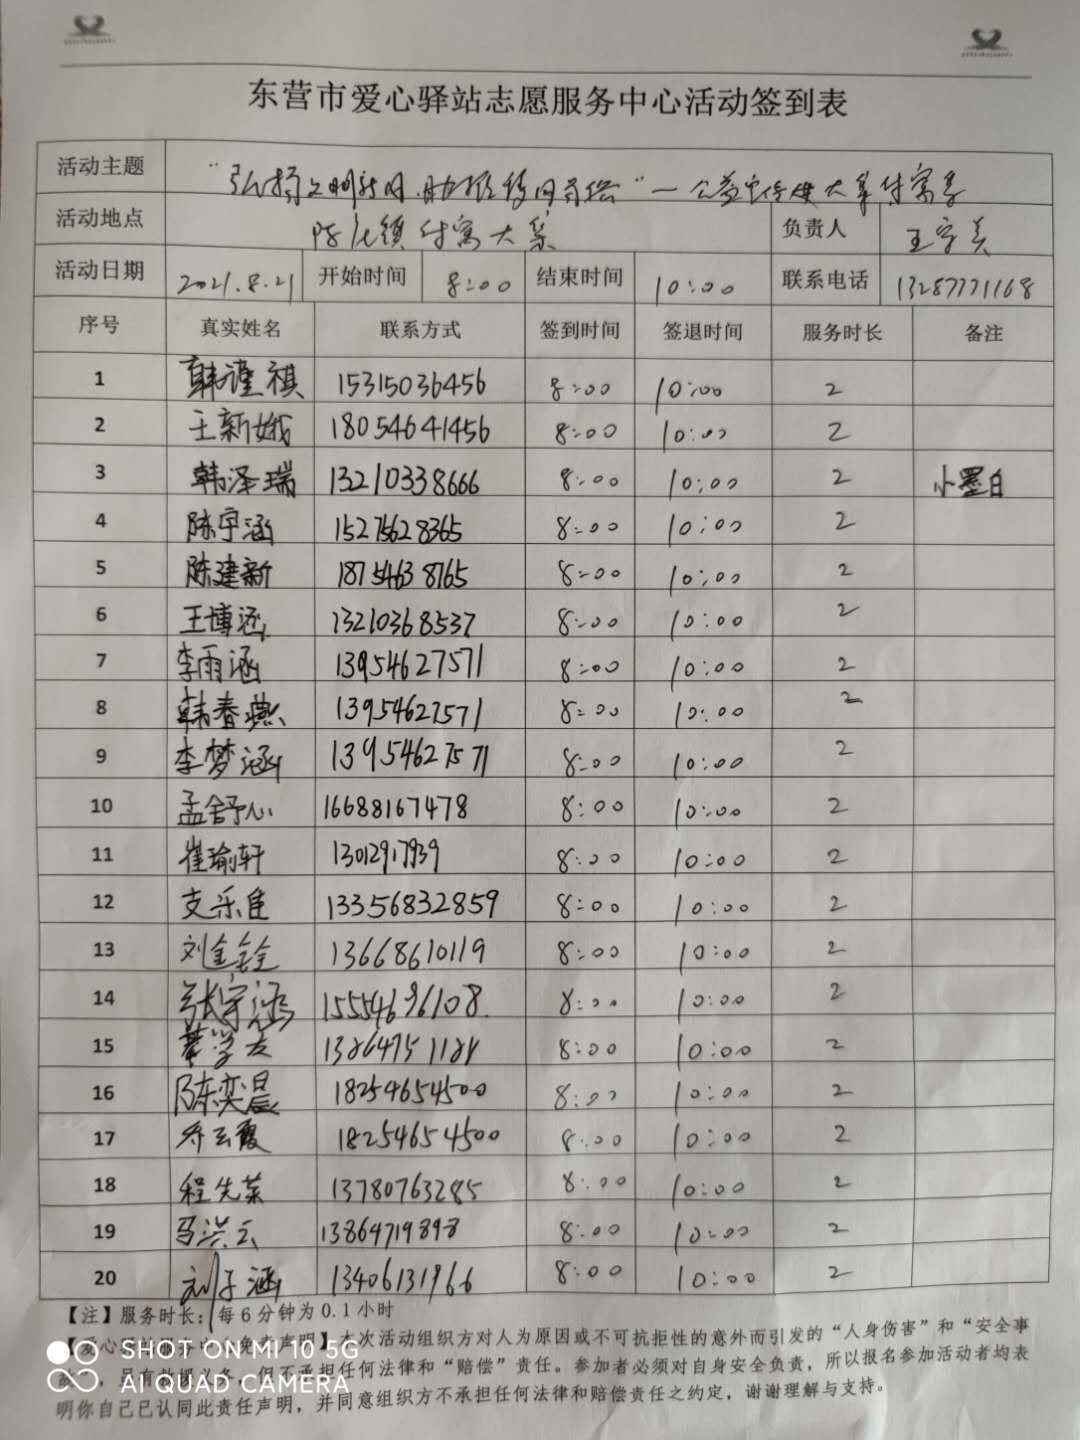 东营市爱心驿站志愿服务中心活动签到表
活动主题 公益宣传
活动地点 陈庄镇付窝大集 负责人
活动日期 2021.8.21 开始时间 8:00 结束时间 10:00 联系电话 13287771168
序号 真实姓名 联系方式 签到时间 签退时间 服务时长 备注
1 韩谨祺 15315036456 8:00 10:00 2
2 王新娥 18054641456 8:00 10:00 2
3 韩泽瑞 13210338666 8:00 10:00 2 小墨白
4 陈宇涵 15275628365 8:00 10:00 2
5 陈建新 18754638765 8:00 10:00 2
6 王博涵 13210368537 8:00 10:00 2
7 李雨涵 13954627571 8:00 10:00 2
8 韩春燕 13954627571 8:00 10:00 2
9 李梦涵 13954627571 8:00 10:00 2
10 孟舒心 16688167478 8:00 10:00 2
11 崔瑜轩 13012917939 8:00 10:00 2
12 支乐佳 13356832859 8:00 10:00 2
13 刘金铨 13668610119 8:00 10:00 2
14 张宇涵 15554696108 8:00 10:00 2
15 8:00 10:00 2
16 陈奕晨 18254654500 8:00 10:00 2
17 乔云霞 18254654500 8:00 10:00 2
18 程先荣 13780763285 8:00 10:00 2
19 马洪云 13864719898 8:00 10:00 2
20 刘子涵 13406131966 8:00 10:00 2
【注】服务时长：每6分钟为0.1小时
免责声明】本次活动组织方对人为原因或不可抗拒性的意外而引发的“人身伤害”和“安全事
但不承担任何法律和“赔偿”责任。参加者必须对自身安全负责，所以报名参加活动者均表
明你自己已认同此责任声明，并同意组织方不承担任何法律和赔偿责任之约定，谢谢理解与支持。
SHOT ON MI 10 5G
AI QUAD CAMERA